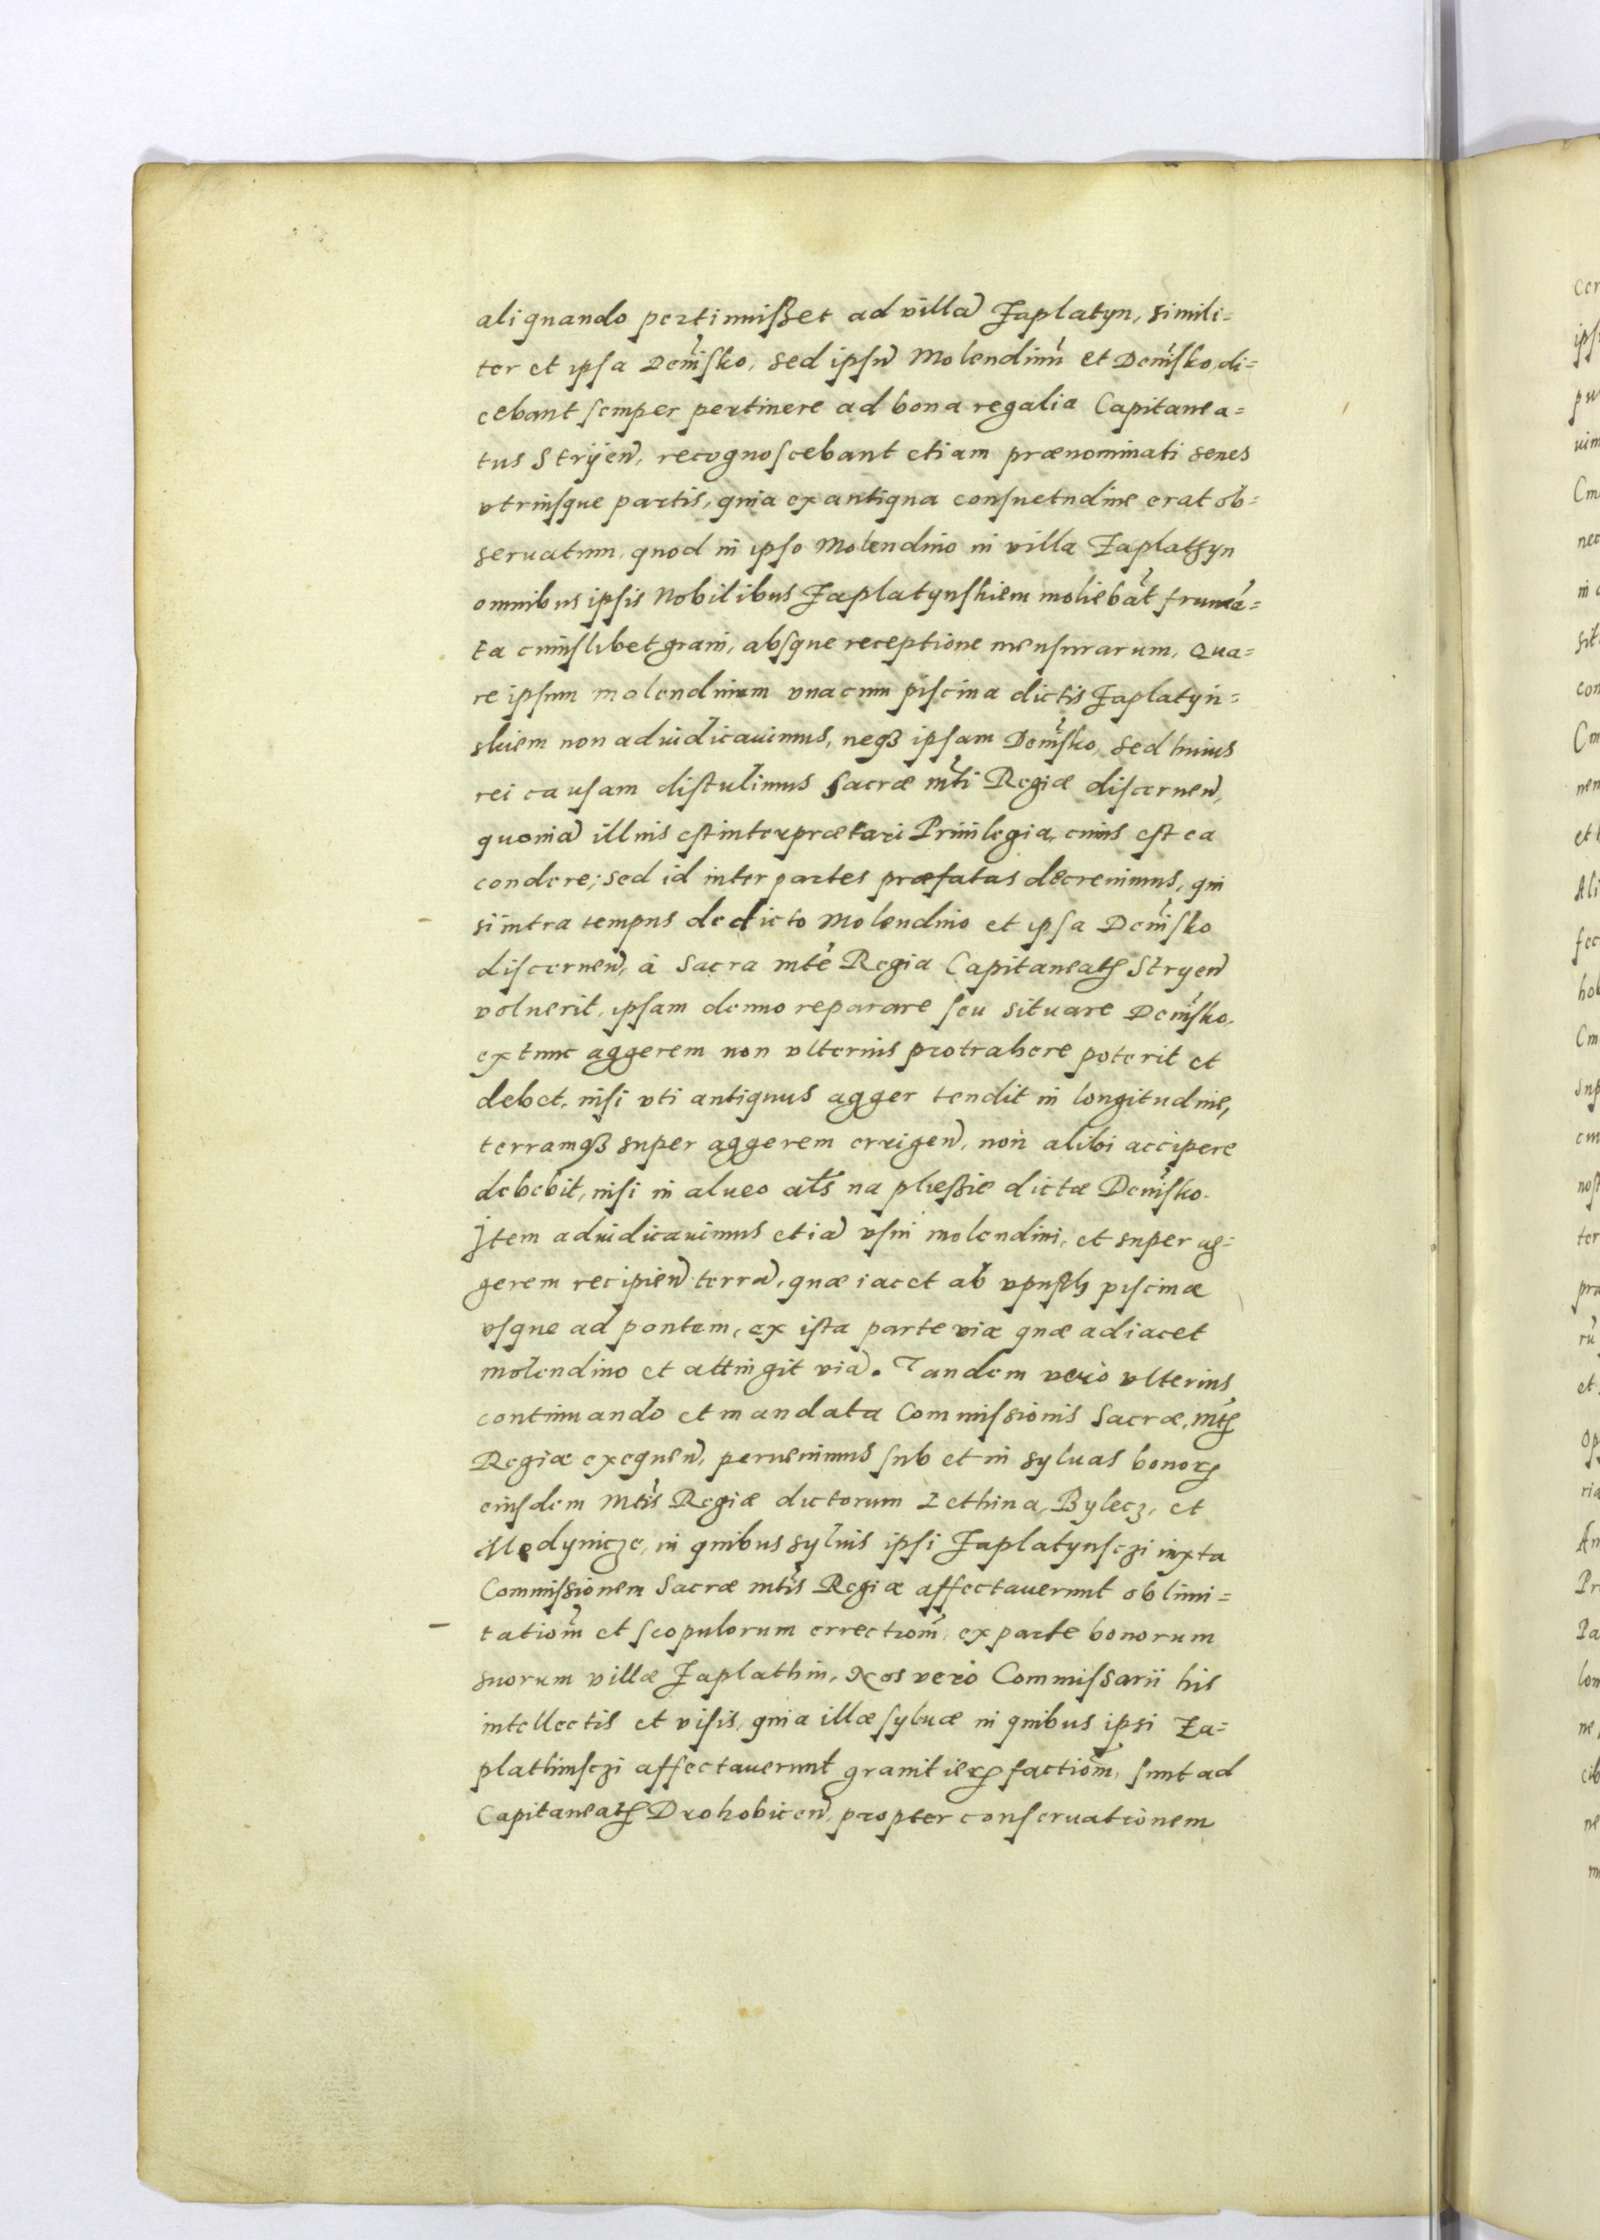 aliquando pertinuisset ad villã Zaplatyn, simili=
ter et ipsa Demsko, sed ipsũ Molendinũ et Demsko, di=
cebant semper pertinere ad bona regalia Capitanea=
tus Stryień, recognoscebant etiam prænominati senes
vtriusque partis, quia ex antiqua consuetudine erat ob=
seruatum, quod in ipso Molendino in villa Zaplathyn
omnibus ipsis Nobilibus Zaplatynskiem moliebãt frumẽ=
ta cuiuslibet grani, absque receptione mensurarum, Qua=
re ipsum molendinum vnacum piscina dictis Zaplatyn=
skiem non adiudicauimus, neqȝ ipsam Demsko, sed huius
rei causam distulimus Sacræ mti Regiæ discernen,
quoniã illius est interprætari Priuilegia, cuius est ea
condere; sed id inter partes præfatas decreuimus, qui
si intra tempus de dicto Molendino et ipsa Demsko
discernen, à Sacra mte Regia Capitaneatꝭ Stryen
voluerit, ipsam denuo reparare seu situare Demsko,
ex tunc aggerem non vlterius protrahere poterit et
debet, nisi vti antiquus agger tendit in longitudine,
terramqȝ super aggerem errigen, non alibi accipere
debebit, nisi in alueo als na plessie dictæ Demsko.
Item adiudicauimus etiã vsui molendini, et super ag=
gerem recipien terrã, quæ iacet ab vpusth piscinæ
vsque ad pontem, ex ista parte viæ quæ adiacet
molendino et attingit viã. Tandem vero vlterius
continuando et mandata Commissionis Sacræ, mtꝭ
Regiæ exequen, peruenimus sub et in syluas bonoꝝ
eiusdem Mtis Regiæ dictorum Lethina, Bylecz, et
Medynicze, in quibus syluis ipsi Zaplatynsczi iuxta
Commissionem Sacræ mtis Regiæ affectauerunt ob limi=
tationm et scopulorum errectionm, ex parte bonorum
suorum villæ Zaplathin, Nos vero Commissarii his
intellectis et visis, quia illæ syluæ in quibus ipsi Za=
plathinsczi affectauerunt granitieꝝ factionm, sunt ad
Capitaneatꝭ Drohobicen, propter conseruationem